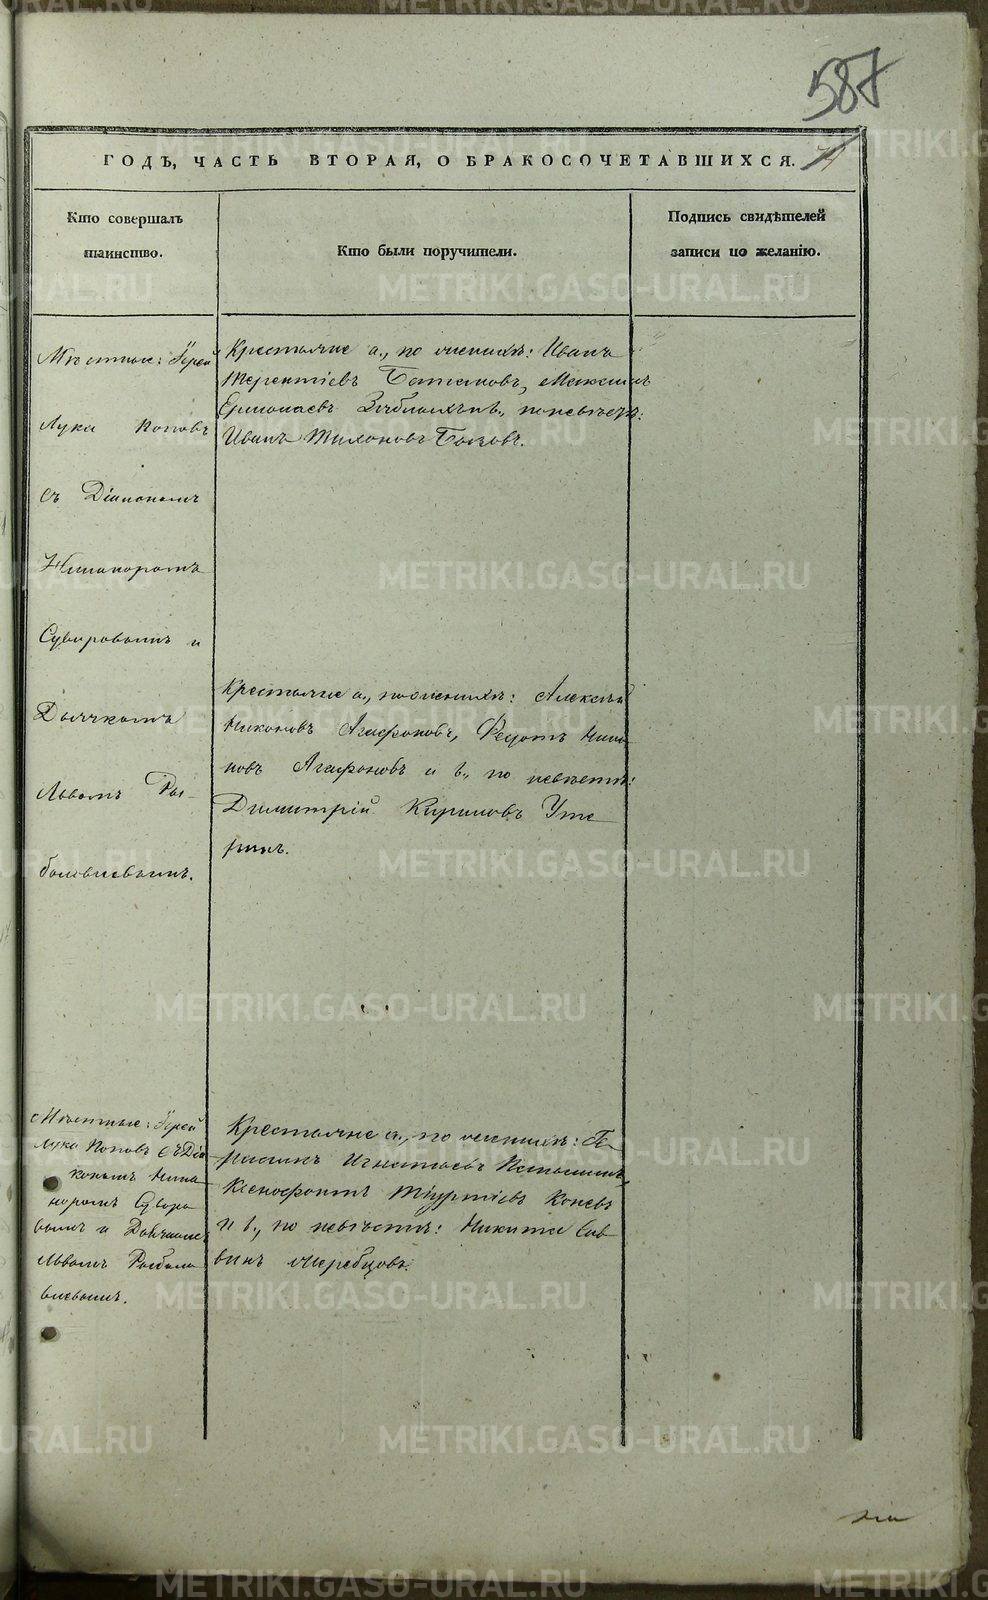 587
ГОДЪ, ЧАСТЬ ВТОРАЯ, О БРАКОСОЧЕТАВШИХСЯ.
Кто совершалъ
таинство.
Кто были поручители.
Подпись свидѣтелей
записи по желанію.
Мѣстные: Іерей
Лука Поповъ
съ Діакономъ
Никаноромъ
Суворовымъ и
Дьячкомъ
Львомъ
Крестьяне а., по женихѣ: Иванъ
Терентіевъ Батановъ, Максимъ
Ермолаевъ по невѣстѣ:
Иванъ Тихоновъ
Крестьяне а., по женихѣ: Алексѣй
Никоновъ Агафоновъ, Федотъ Нико
новъ Агафоновъ и в., по невѣстѣ:
Димитрій Кириловъ Уте
Мѣстные: Іерей
Лука Поповъ съ Діа
кономъ Ника
норомъ Суворо
вымъ и Дьячкомъ
Львомъ
Крестьяне а., по женихѣ: Ге
расимъ Игнатьевъ
Ксенофонтъ Коневъ
и в., по невѣстѣ: Никита Сав
винъ Жеребцовъ.
METRIKI.GASO-URAL.RU